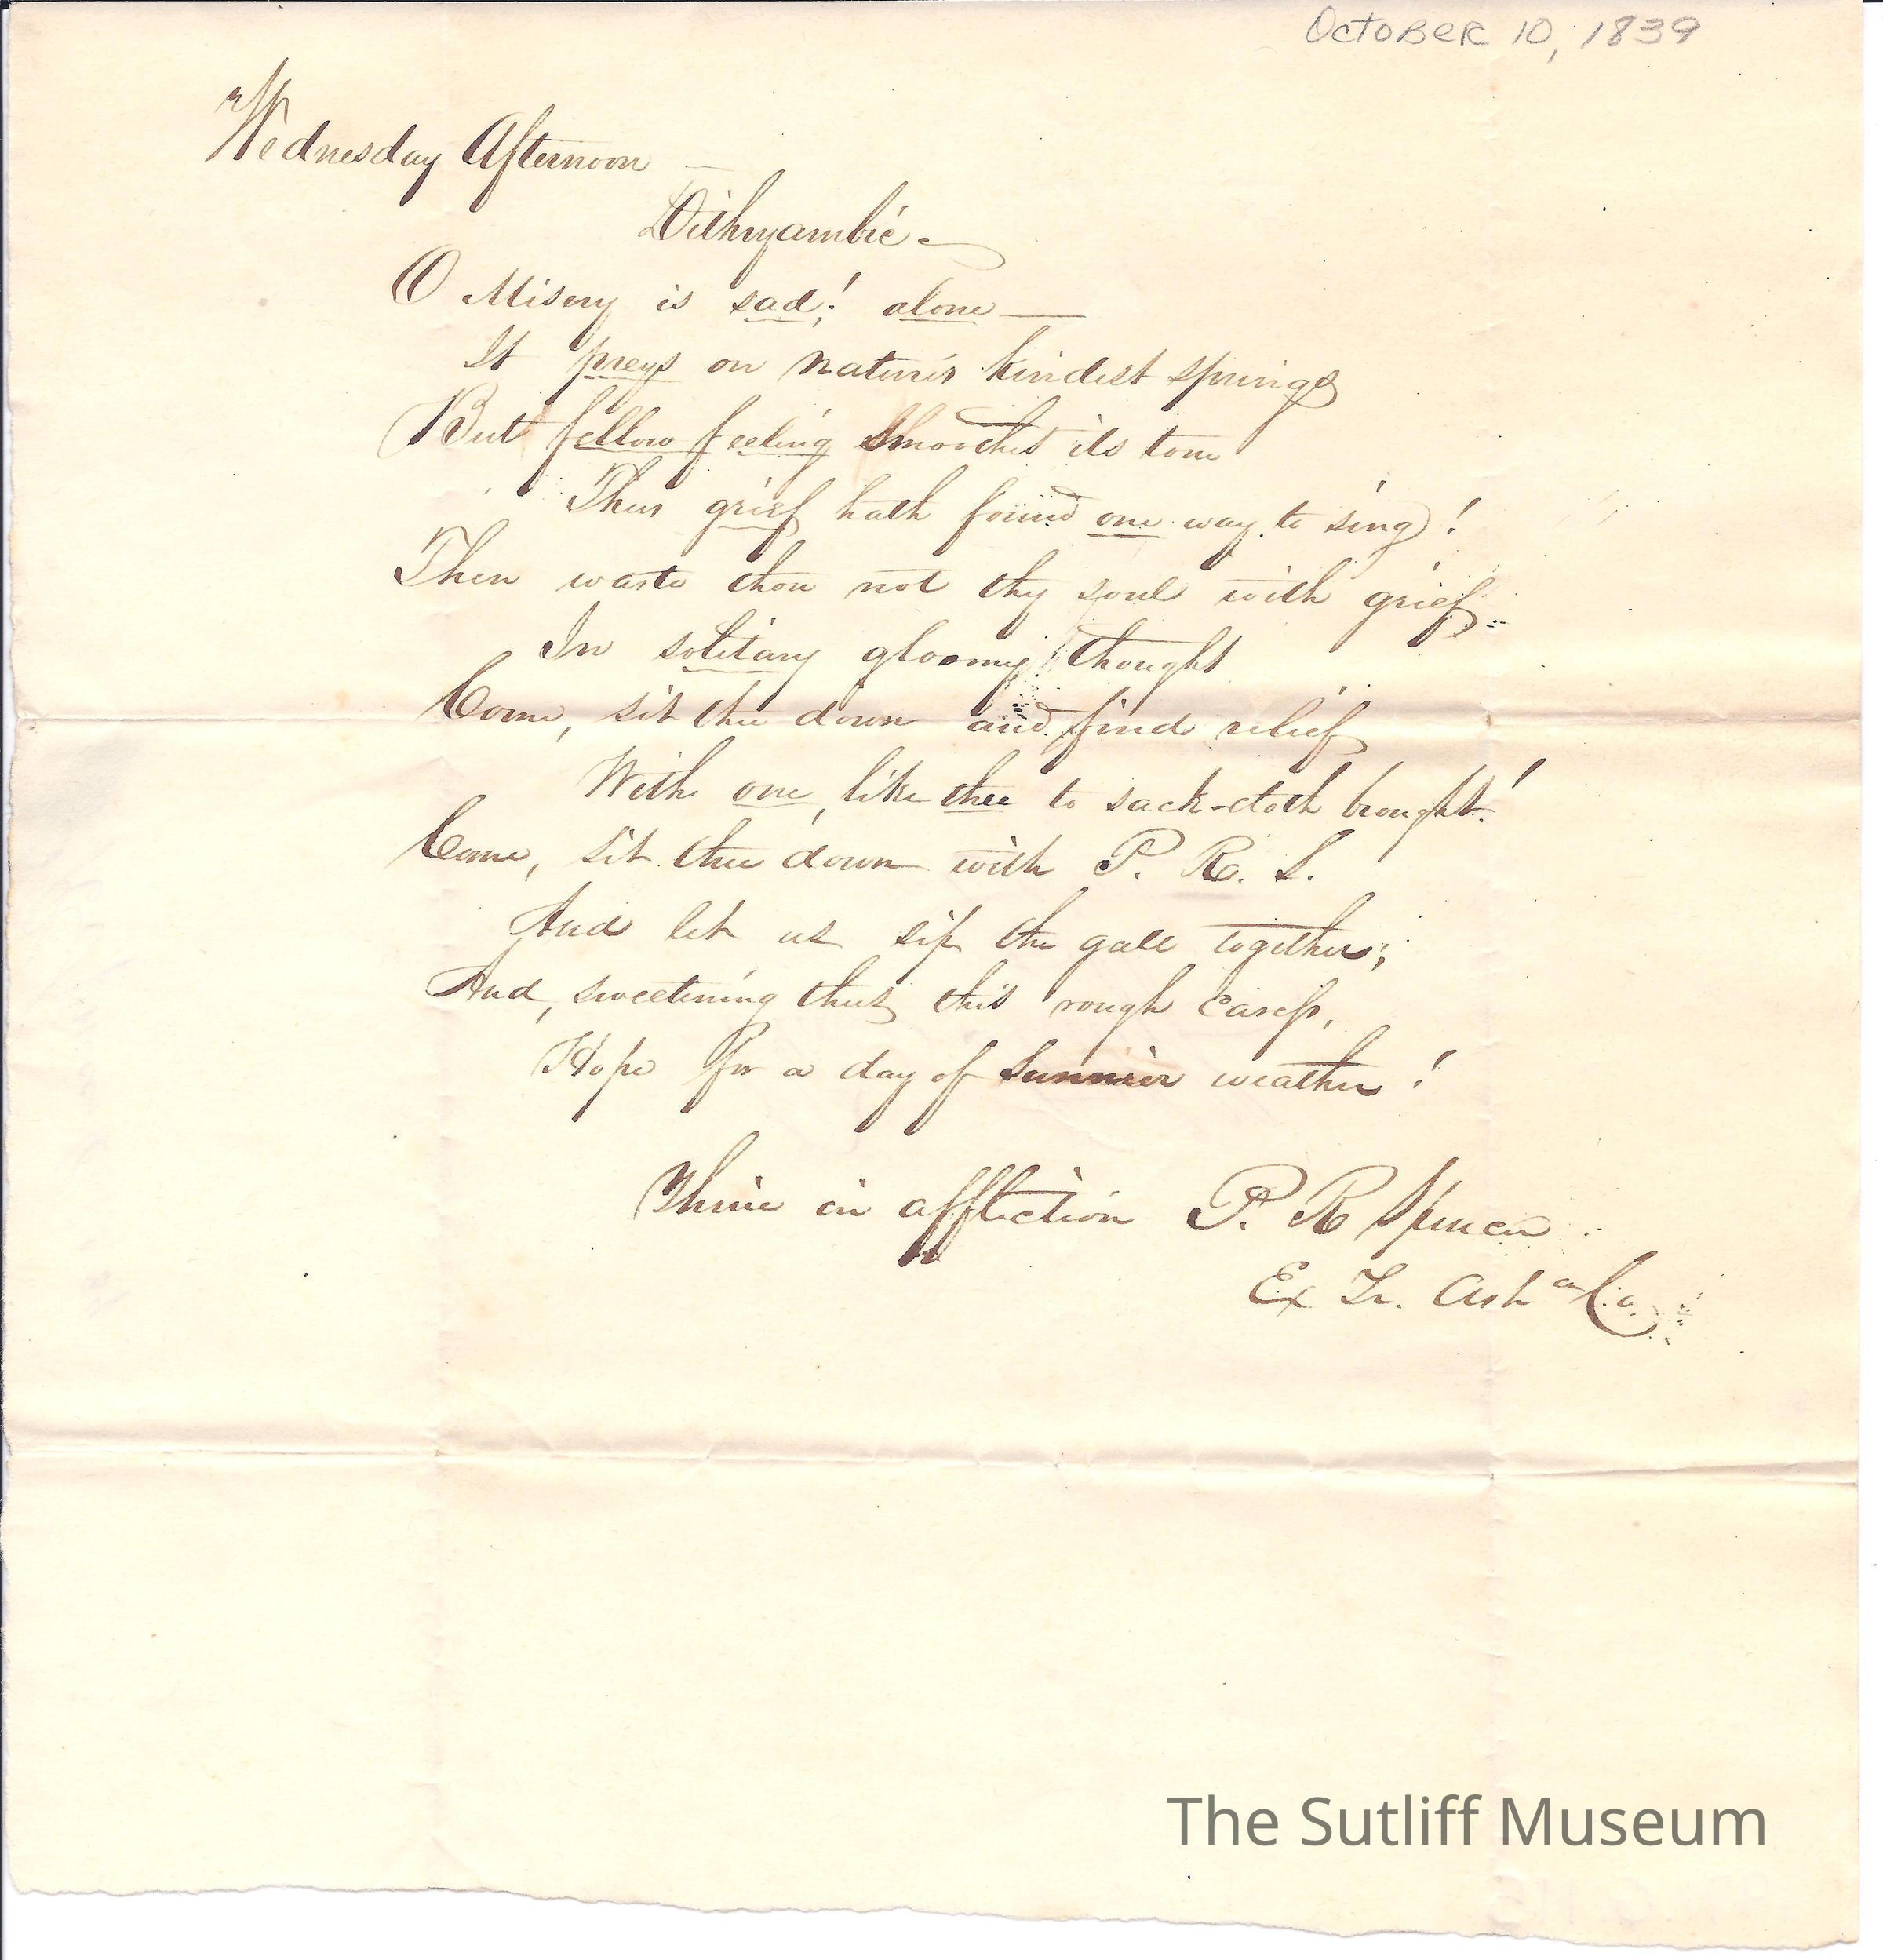 October 10, 1839
Wednesday Afternoon
Dithryambic -
O Misery is sad! alone —
It preys on nature's kindest springs
But fellow feeling smoothes its tone
Thus grief hath found one way to sing!
Then waste thou not thy soul with grief
In solitary gloomy thought
Come, sit thee down and find relief
With one, like thee to sack-cloth brought!
Come, sit thee down with P. R. S.
And let us sip the gall together;
And, sweetening thus this rough caress,
Hope for a day of Sunnier weather!
Thine in affliction P. R Spencer
Ex Tr. Ash a Co.
The Sutliff Museum